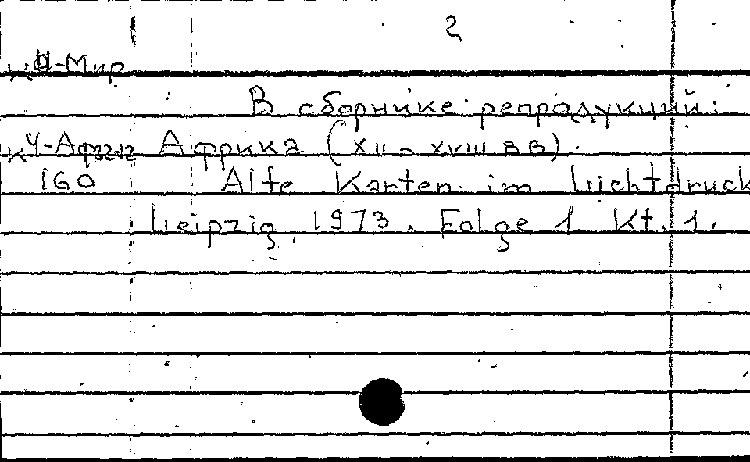 1 2
К Ц-Мир
В сборнике репродукций:
К Ч-Аф Африка (XII - XVIII вв).
160 Alte Karten im Lichtdruck
Leipzig, 1973. Folge 1 Kt. 1.